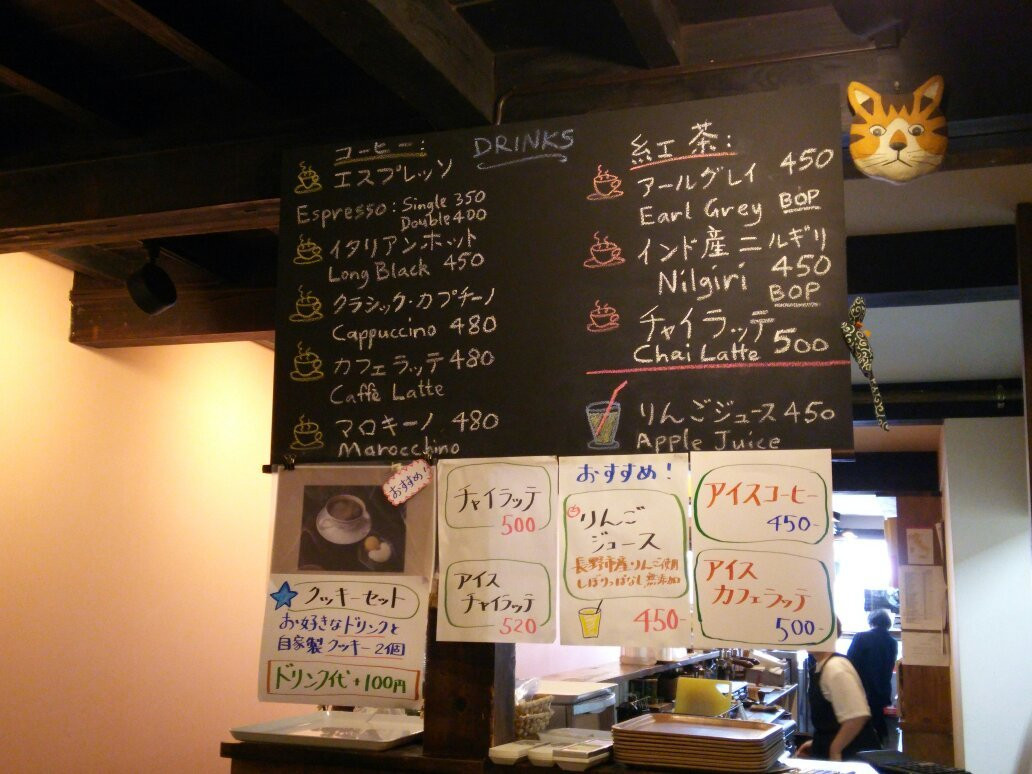 DRINKS
コーヒー:
エスプレッソ
Espresso: Single 350
Double 400
イタリアンホット
Long Black 450
クラシック・カプチーノ
Cappuccino 480
カフェラッテ 480
Caffè Latte
マロキーノ 480
Marocchino
紅茶:
アールグレイ 450
Earl Grey BOP
インド産ニルギリ
Nilgiri 450
BOP
チャイラッテ
Chai Latte 500
りんごジュース 450
Apple Juice
おすすめ!
クッキーセット
お好きなドリンクと
自家製クッキー2個
ドリンク代+100円
チャイラッテ
500
アイス
チャイラッテ
520
おすすめ!
りんご
ジュース
長野市産りんご使用
しぼりっぱなし無添加
450-
アイスコーヒー
450-
アイス
カフェラッテ
500-